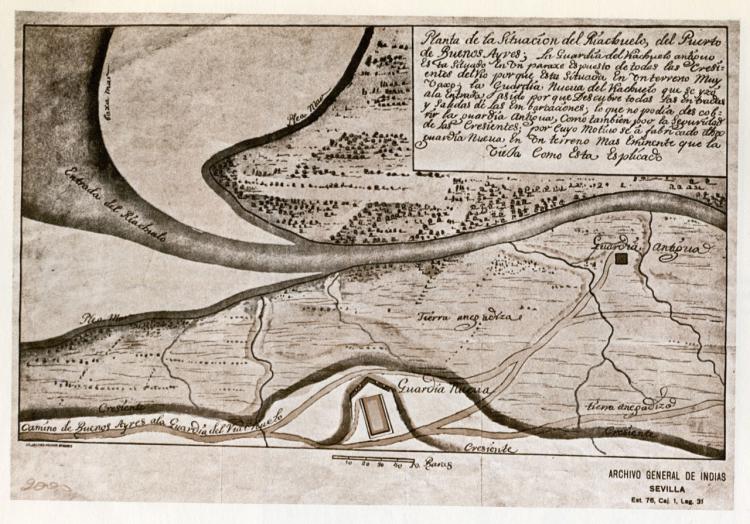 Planta de la Situacion del Riachuelo, del Puerto
de Buenos Ayres; La Guardia del Riachuelo antiguo
Esta Situado En Un paraxe Espuesto de todas las Cresi-
entes del Rio porque Esta Situada En Un terreno Muy
Vaxo; la Guardia Nueva del Riachuelo que se yzo
ala Entrada, a sido por que Descubre todas Las Entradas
y Salidas de las Embarcaciones; lo que no podia descob-
rir la guardia Antigua, Como tambien por la Seguridad
de las Cresientes; por Cuyo Motivo se á fabricado
guardia Nueva En Un terreno Mas Eminente que la
Vieja Como Esta Esplicado
Baxa mar
Plea Mar
Entrada del Riachuelo
Guardia Antigua
Plea Mar
Tierra anegadiza
Guardia Nueva
Cresiente
tierra anegadiza
Camino de Buenos Ayres ala Guardia del Riachuelo
Cresiente
Cresiente
10 20 30 40 50 Varas
ARCHIVO GENERAL DE INDIAS
SEVILLA
Est. 76, Caj. 1, Leg. 31